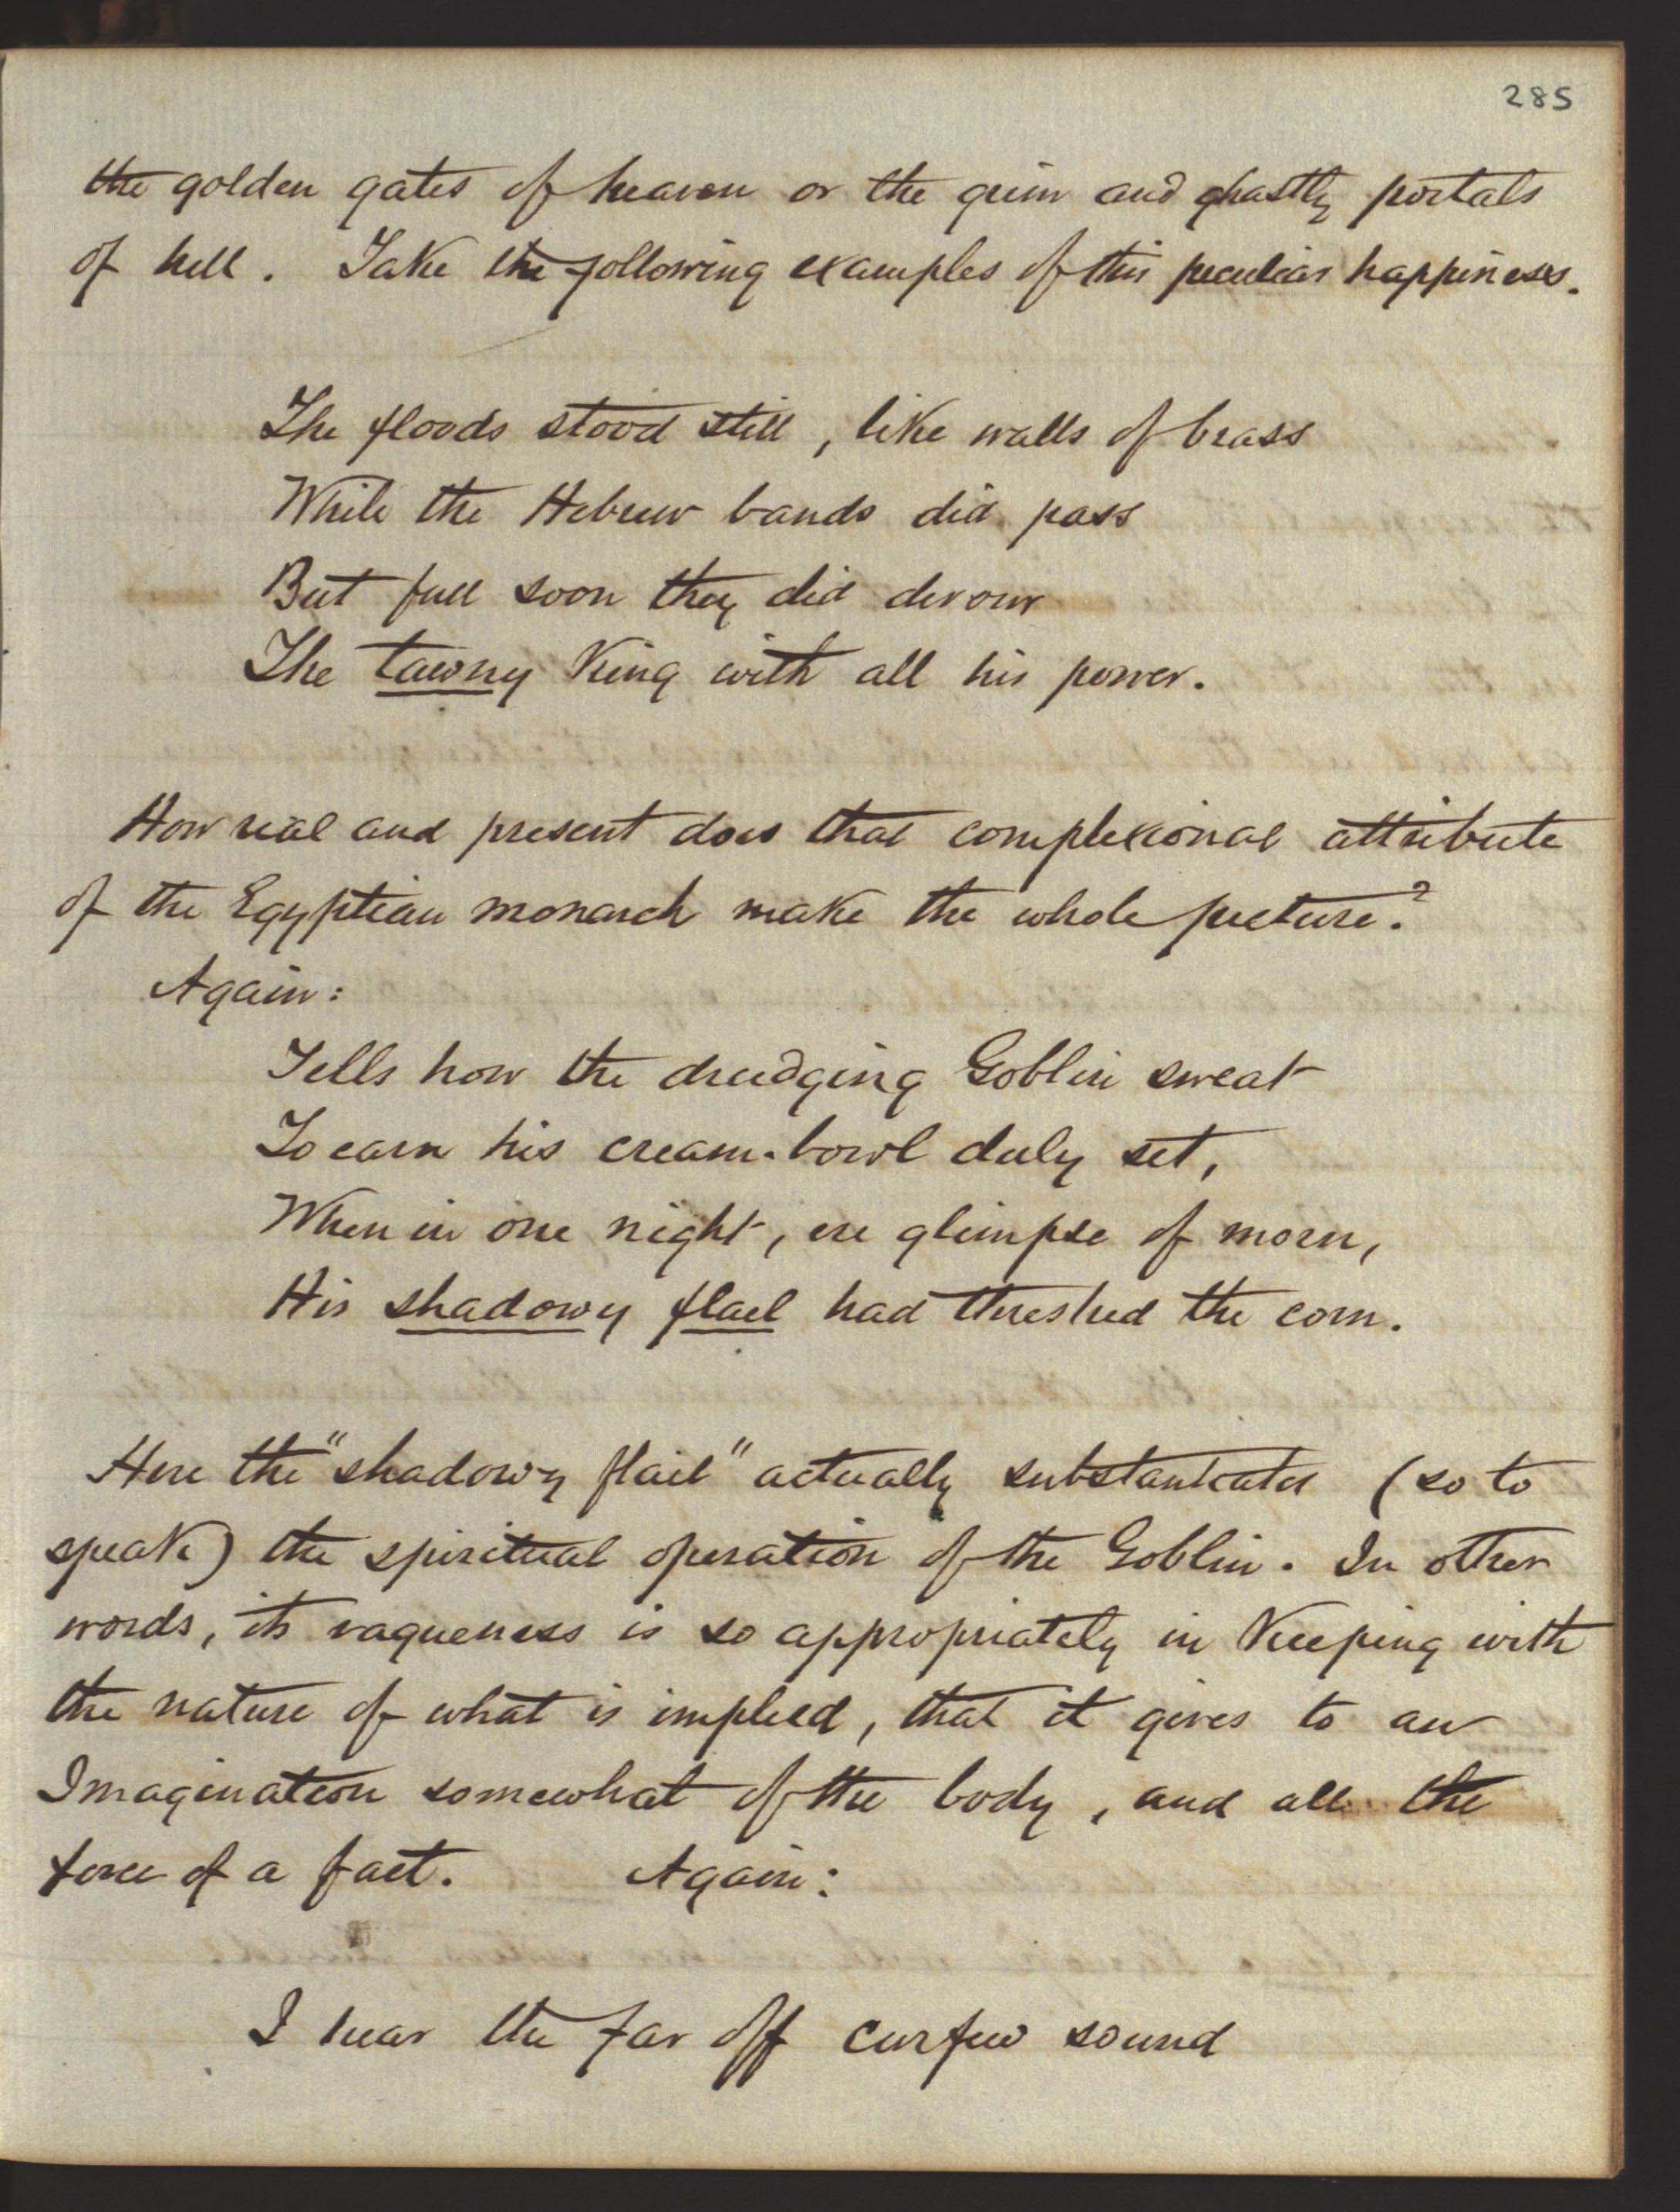 285
the golden gates of heaven or the grim and ghastly portals
of hell. Take the following examples of this peculiar happiness.
The floods stood still, like walls of brass
While the Hebrew bands did pass
But full soon they did devour
The tawny King with all his power.
How real and present does that complexional attribute
of the Egyptian monarch make the whole picture?
Again:
Tells how the drudging Goblin sweat
To earn his cream-bowl duly set,
When in one night, ere glimpse of morn,
His shadowy flail had threshed the corn.
Here the "shadowy flail" actually substantiates (so to
speak) the spiritual operation of the Goblin. In other
words, its vagueness is so appropriately in Keeping with
the nature of what is implied, that it gives to an
Imagination somewhat of the body, and all the
force of a fact. Again:
I hear the far off curfew sound